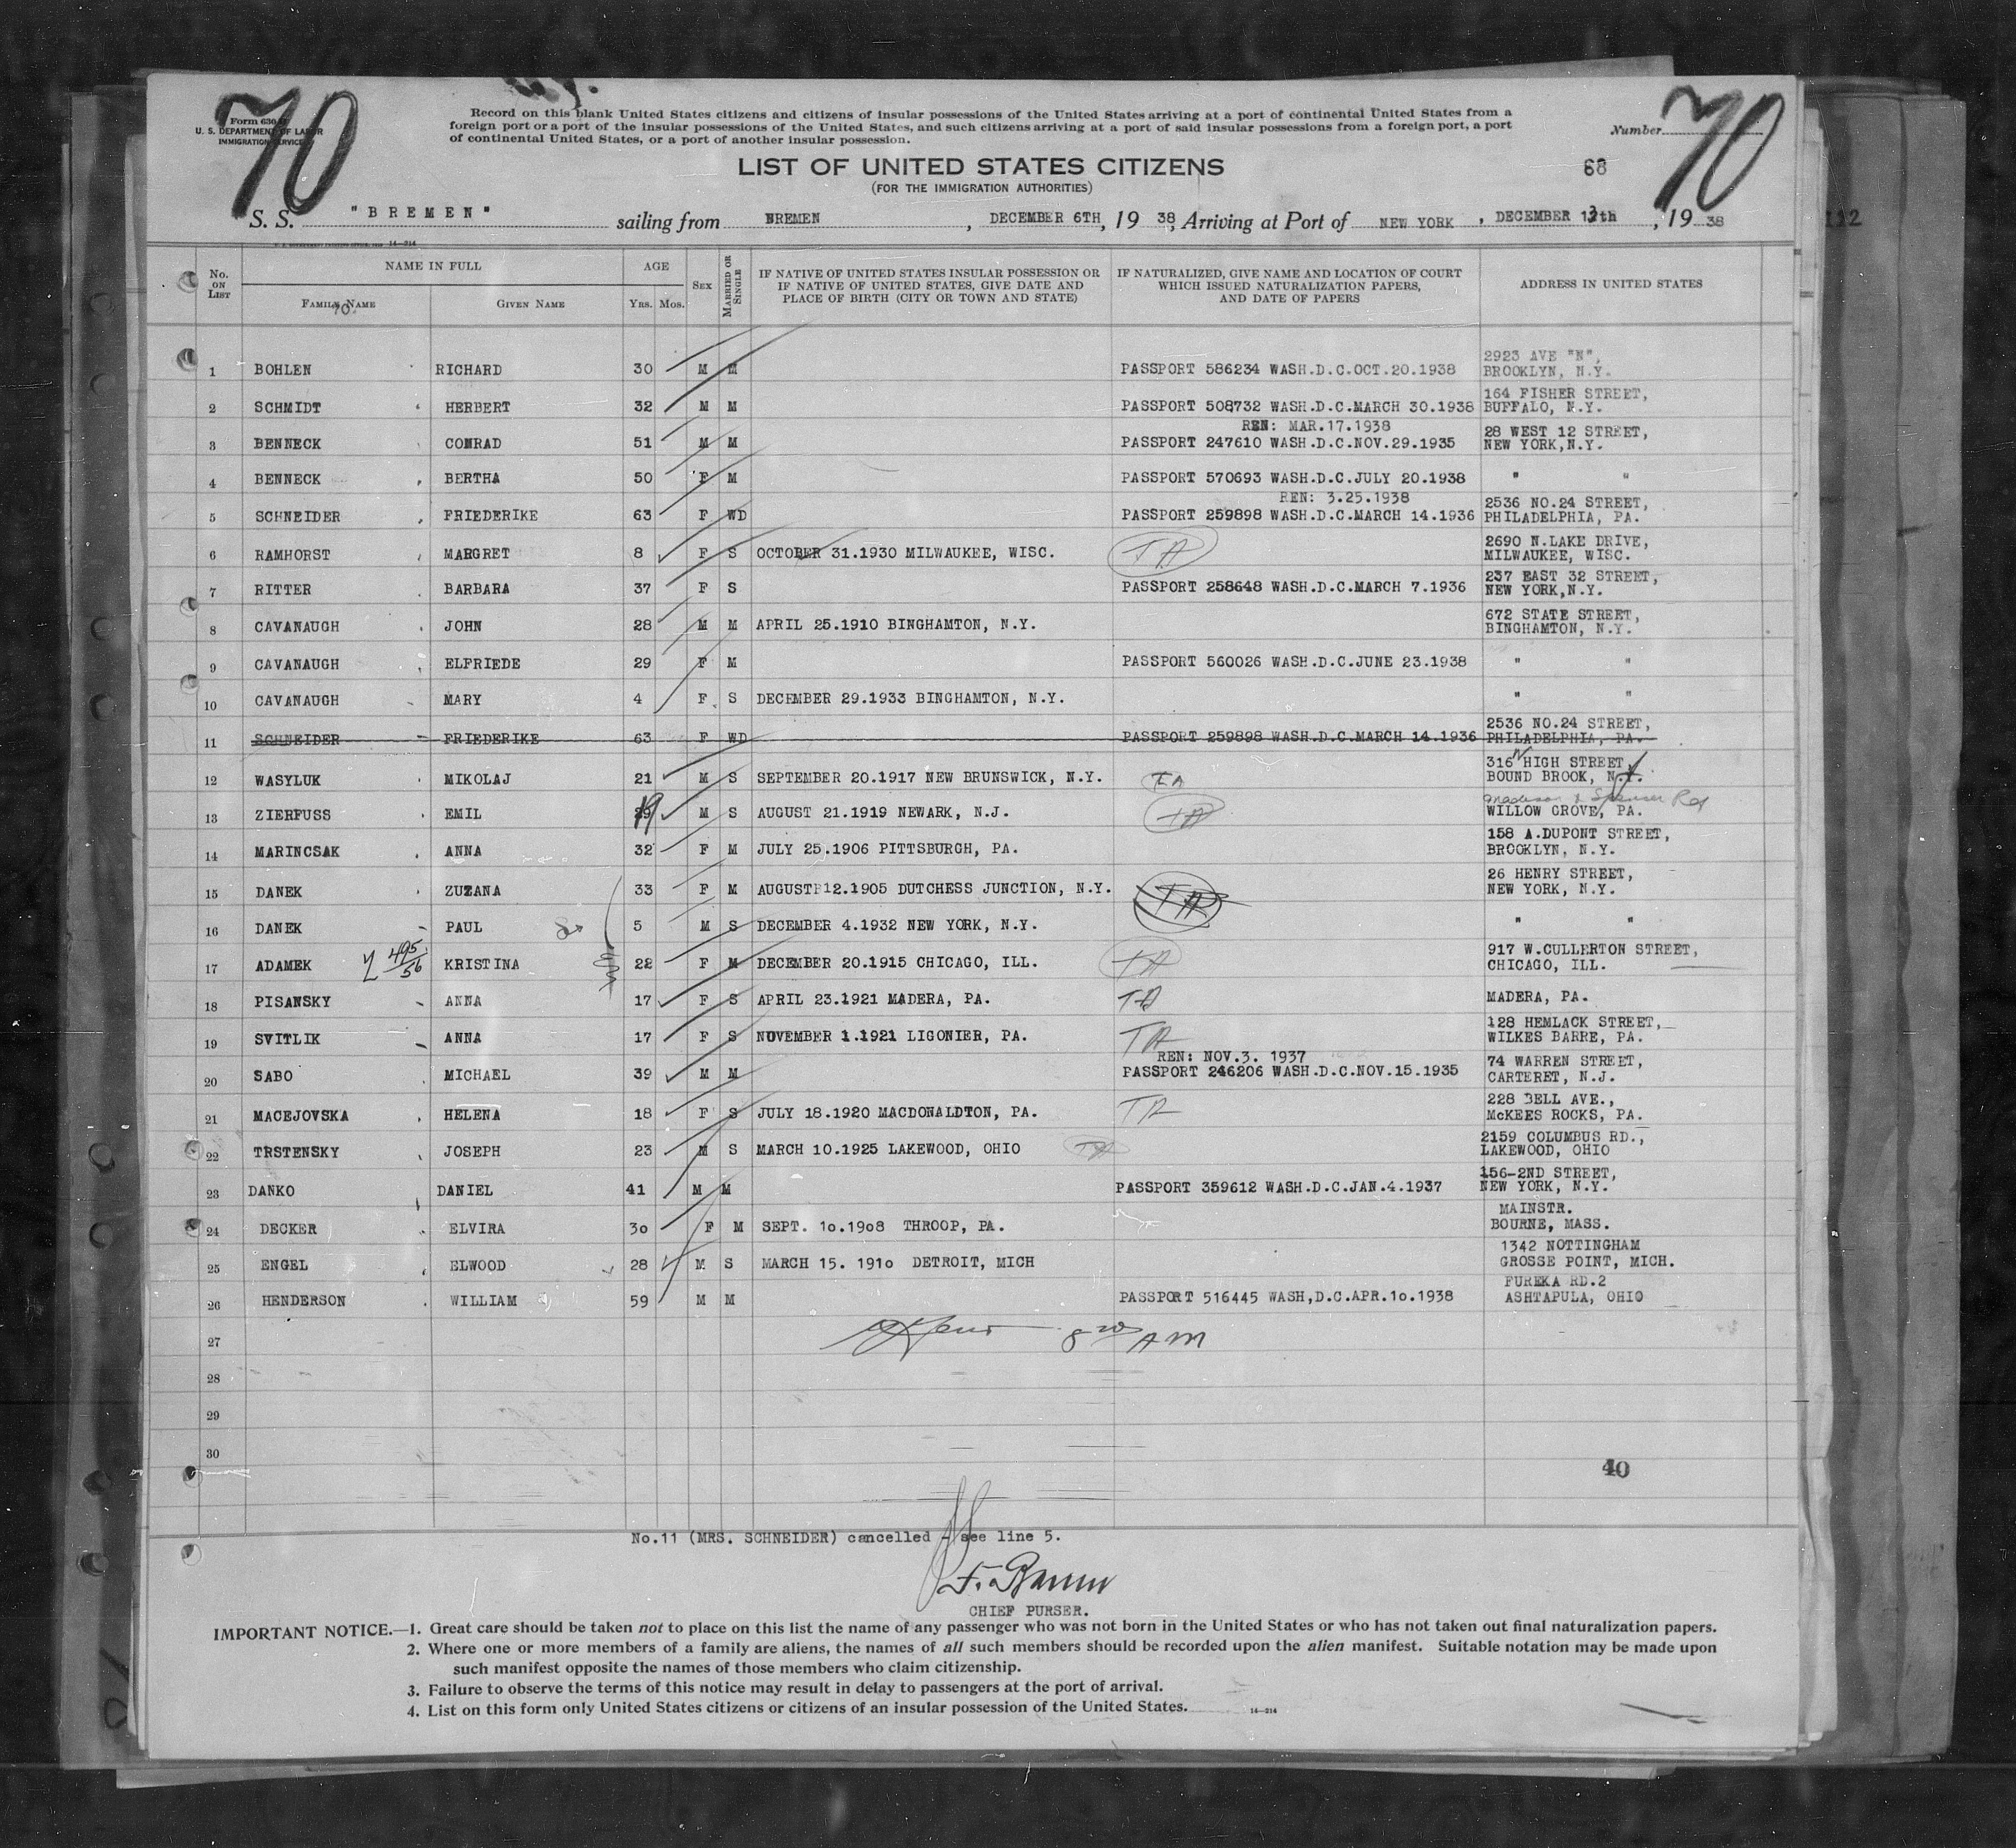 70
70
Form 630
U. S. DEPARTMENT OF LABOR
IMMIGRATION SERVICE
Record on this blank United States citizens and citizens of insular possessions of the United States arriving at a port of continental United States from a
foreign port or a port of the insular possessions of the United States, and such citizens arriving at a port of said insular possessions from a foreign port, a port
of continental United States, or a port of another insular possession.
Number
LIST OF UNITED STATES CITIZENS
(FOR THE IMMIGRATION AUTHORITIES)
68
S. S. "BREMEN" sailing from BREMEN, DECEMBER 6TH, 19 38, Arriving at Port of NEW YORK, DECEMBER 13th, 19 38
112
14—214
No. ON LIST
NAME IN FULL
FAMILY NAME
GIVEN NAME
AGE
YRS. MOS.
SEX
MARRIED OR SINGLE
IF NATIVE OF UNITED STATES INSULAR POSSESSION OR
IF NATIVE OF UNITED STATES, GIVE DATE AND
PLACE OF BIRTH (CITY OR TOWN AND STATE)
IF NATURALIZED, GIVE NAME AND LOCATION OF COURT
WHICH ISSUED NATURALIZATION PAPERS,
AND DATE OF PAPERS
ADDRESS IN UNITED STATES
70
2923 AVE "N",
1 BOHLEN RICHARD 30 M M PASSPORT 586234 WASH.D.C.OCT.20.1938 BROOKLYN, N.Y.
164 FISHER STREET,
2 SCHMIDT HERBERT 32 M M PASSPORT 508732 WASH.D.C.MARCH 30.1938 BUFFALO, N.Y.
REN: MAR.17.1938 28 WEST 12 STREET,
3 BENNECK CONRAD 51 M M PASSPORT 247610 WASH.D.C.NOV.29.1935 NEW YORK,N.Y.
4 BENNECK BERTHA 50 F M PASSPORT 570693 WASH.D.C.JULY 20.1938 " "
REN: 3.25.1938 2536 NO.24 STREET,
5 SCHNEIDER FRIEDERIKE 63 F WD PASSPORT 259898 WASH.D.C.MARCH 14.1936 PHILADELPHIA, PA.
2690 N.LAKE DRIVE,
6 RAMHORST MARGRET 8 F S OCTOBER 31.1930 MILWAUKEE, WISC. TA MILWAUKEE, WISC.
237 EAST 32 STREET,
7 RITTER BARBARA 37 F S PASSPORT 258648 WASH.D.C.MARCH 7.1936 NEW YORK,N.Y.
672 STATE STREET,
8 CAVANAUGH JOHN 28 M M APRIL 25.1910 BINGHAMTON, N.Y. BINGHAMTON, N.Y.
9 CAVANAUGH ELFRIEDE 29 F M PASSPORT 560026 WASH.D.C.JUNE 23.1938 " "
10 CAVANAUGH MARY 4 F S DECEMBER 29.1933 BINGHAMTON, N.Y. " "
2536 NO.24 STREET,
11 SCHNEIDER FRIEDERIKE 63 F WD PASSPORT 259898 WASH.D.C.MARCH 14.1936 PHILADELPHIA, PA.
316 N HIGH STREET,
12 WASYLUK MIKOLAJ 21 M S SEPTEMBER 20.1917 NEW BRUNSWICK, N.Y. TA BOUND BROOK, N.J.
Madison & Spenser Rd
13 ZIERFUSS EMIL 19 M S AUGUST 21.1919 NEWARK, N.J. TA WILLOW GROVE, PA.
158 A.DUPONT STREET,
14 MARINCSAK ANNA 32 F M JULY 25.1906 PITTSBURGH, PA. BROOKLYN, N.Y.
26 HENRY STREET,
15 DANEK ZUZANA 33 F M AUGUST 12.1905 DUTCHESS JUNCTION, N.Y. TA NEW YORK, N.Y.
16 DANEK PAUL 5 M S DECEMBER 4.1932 NEW YORK, N.Y. " "
495/56 917 W.CULLERTON STREET,
17 ADAMEK KRISTINA 22 F M DECEMBER 20.1915 CHICAGO, ILL. TA CHICAGO, ILL.
18 PISANSKY ANNA 17 F S APRIL 23.1921 MADERA, PA. TA MADERA, PA.
128 HEMLACK STREET,
19 SVITLIK ANNA 17 F S NOVEMBER 1.1921 LIGONIER, PA. TA WILKES BARRE, PA.
REN: NOV.3. 1937 74 WARREN STREET,
20 SABO MICHAEL 39 M M PASSPORT 246206 WASH.D.C.NOV.15.1935 CARTERET, N.J.
228 BELL AVE.,
21 MACEJOVSKA HELENA 18 F S JULY 18.1920 MACDONALDTON, PA. TA McKEES ROCKS, PA.
2159 COLUMBUS RD.,
22 TRSTENSKY JOSEPH 23 M S MARCH 10.1925 LAKEWOOD, OHIO TA LAKEWOOD, OHIO
156-2ND STREET,
23 DANKO DANIEL 41 M M PASSPORT 359612 WASH.D.C.JAN.4.1937 NEW YORK, N.Y.
MAINSTR.
24 DECKER ELVIRA 30 F M SEPT. 10.1908 THROOP, PA. BOURNE, MASS.
1342 NOTTINGHAM
25 ENGEL ELWOOD 28 M S MARCH 15. 1910 DETROIT, MICH GROSSE POINT, MICH.
EUREKA RD.2
26 HENDERSON WILLIAM 59 M M PASSPORT 516445 WASH,D.C.APR.10.1938 ASHTAPULA, OHIO
27 8 AM
28
29
30
40
No.11 (MRS. SCHNEIDER) cancelled - see line 5.
CHIEF PURSER.
IMPORTANT NOTICE.—1. Great care should be taken not to place on this list the name of any passenger who was not born in the United States or who has not taken out final naturalization papers.
2. Where one or more members of a family are aliens, the names of all such members should be recorded upon the alien manifest. Suitable notation may be made upon
such manifest opposite the names of those members who claim citizenship.
3. Failure to observe the terms of this notice may result in delay to passengers at the port of arrival.
4. List on this form only United States citizens or citizens of an insular possession of the United States. 14—214